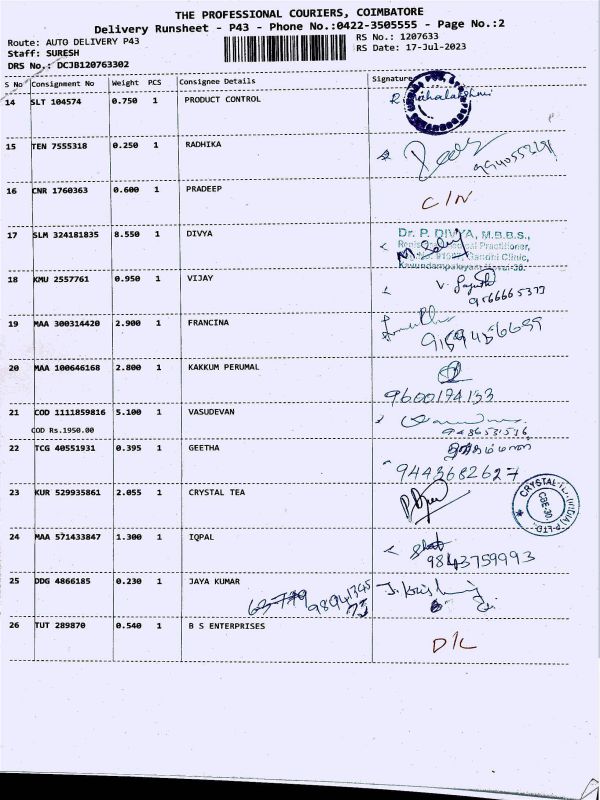 THE PROFESSIONAL COURIERS, COIMBATORE
Delivery Runsheet - P43 - Phone No.:0422-3505555 - Page No.:2
Route: AUTO DELIVERY P43
RS No.: 1207633
Staff: SURESH
RS Date: 17-Jul-2023
DRS No.: DCJB120763302
S No Consignment No Weight PCS Consignee Details Signature
14 SLT 104574 0.750 1 PRODUCT CONTROL
15 TEN 7555318 0.250 1 RADHIKA
16 CNR 1760363 0.600 1 PRADEEP C/N
17 SLM 324181835 8.550 1 DIVYA
Dr. P. DIVYA, M.B.B.S.,
18 KMU 2557761 0.950 1 VIJAY
19 MAA 300314420 2.900 1 FRANCINA
20 MAA 100646168 2.800 1 KAKKUM PERUMAL
9600194133
21 COD 1111859816 5.100 1 VASUDEVAN
COD Rs.1950.00
22 TCG 40551931 0.395 1 GEETHA
9443682627
23 KUR 529935861 2.055 1 CRYSTAL TEA
24 MAA 571433847 1.300 1 IQPAL
9843759993
25 DDG 4866185 0.230 1 JAYA KUMAR
26 TUT 289870 0.540 1 B S ENTERPRISES D/L